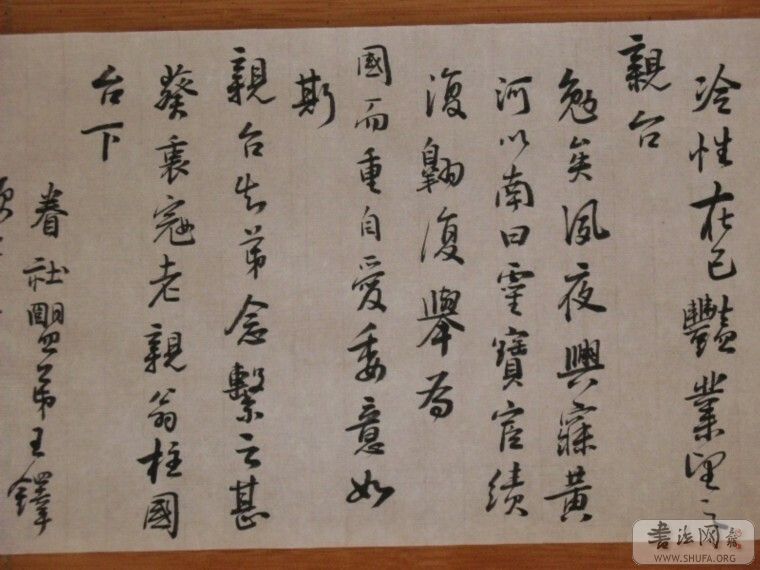 冷性在己豔業望之
親台
勉矣夙夜興寐黃
河以南曰靈寶宦績
復翱復舉為
國而重自愛委意如
斯
親台知弟念繫之甚
葵衷寇老親翁柱國
台下
眷社盟弟王鐸
書法网
WWW.SHUFA.ORG